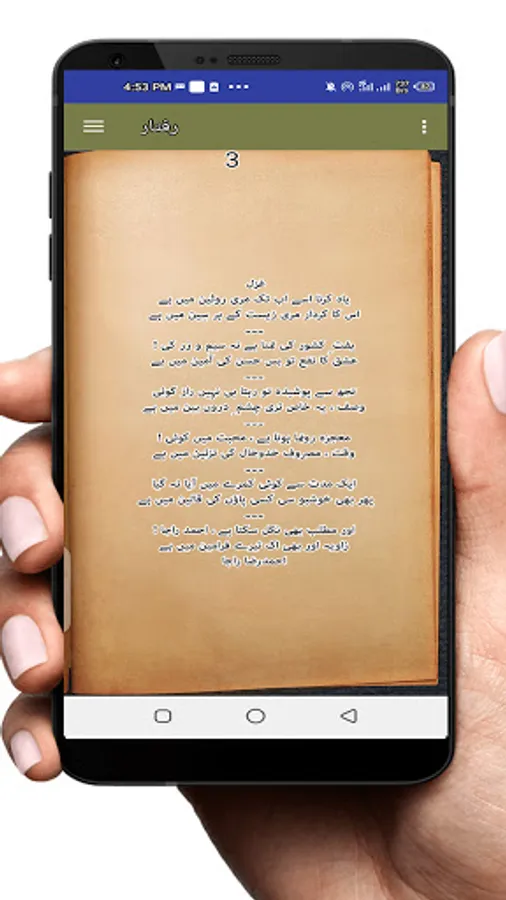 4:53 PM
رفتار
3
غزل
یاد کرنا اسے اب تک مری روٹین میں ہے
اس کا کردار مری زیست کے ہر سین میں ہے
---
ہفت کشور کی تمنا ہے نہ سیم و زر کی !
عشق کا نفع تو بس حسن کی آمین میں ہے
---
تجھ سے پوشیدہ تو رہتا ہی نہیں راز کوئی
وصف ، یہ خاص تری چشمِ دروں بین میں ہے
---
معجزہ رونما ہونا ہے ، محبت میں کوئی !
وقت ، مصروف خدوخال کی تزئین میں ہے
---
ایک مدت سے کوئی کمرے میں آیا نہ گیا
پھر بھی خوشبو سی کسی پاؤں کی قالین میں ہے
---
اور مطلب بھی نکل سکتا ہے ، احمد راجا !
زاویہ اور بھی اک تیرے فرامین میں ہے
احمدرضا راجا